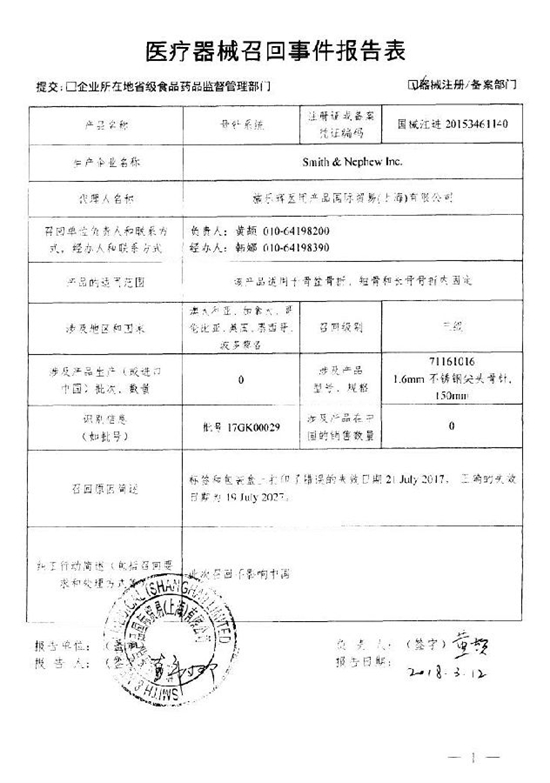 医疗器械召回事件报告表
提交：□企业所在地省级食品药品监督管理部门 ☑器械注册/备案部门
产品名称 骨针系统 注册证或备案凭证编码 国械注进 20153461140
生产企业名称 Smith & Nephew Inc.
代理人名称 施乐辉医用产品国际贸易(上海)有限公司
召回单位负责人和联系方式、经办人和联系方式
负责人：黄颉 010-64198200
经办人：韩娜 010-64198390
产品的适用范围 该产品适用于骨盆骨折、短骨和长骨骨折内固定
涉及地区和国家 澳大利亚、加拿大、哥伦比亚、英国、墨西哥、波多黎各 召回级别 三级
涉及产品生产（或进口中国）批次、数量 0 涉及产品型号、规格 71161016
1.6mm 不锈钢尖头骨针，150mm
识别信息（如批号） 批号 17GK00029 涉及产品在中国的销售数量 0
召回原因简述 标签和包装盒上打印了错误的失效日期 21 July 2017，正确的失效日期为 19 July 2027。
纠正行动简述（包括召回要求和处理方式等） 此次召回不影响中国
报告单位：（盖 负 责 人：（签字）
报 告 人：（签 报告日期： 2018.3.12
(SHANGHAI) LIMITED
SMITH &
— 1 —